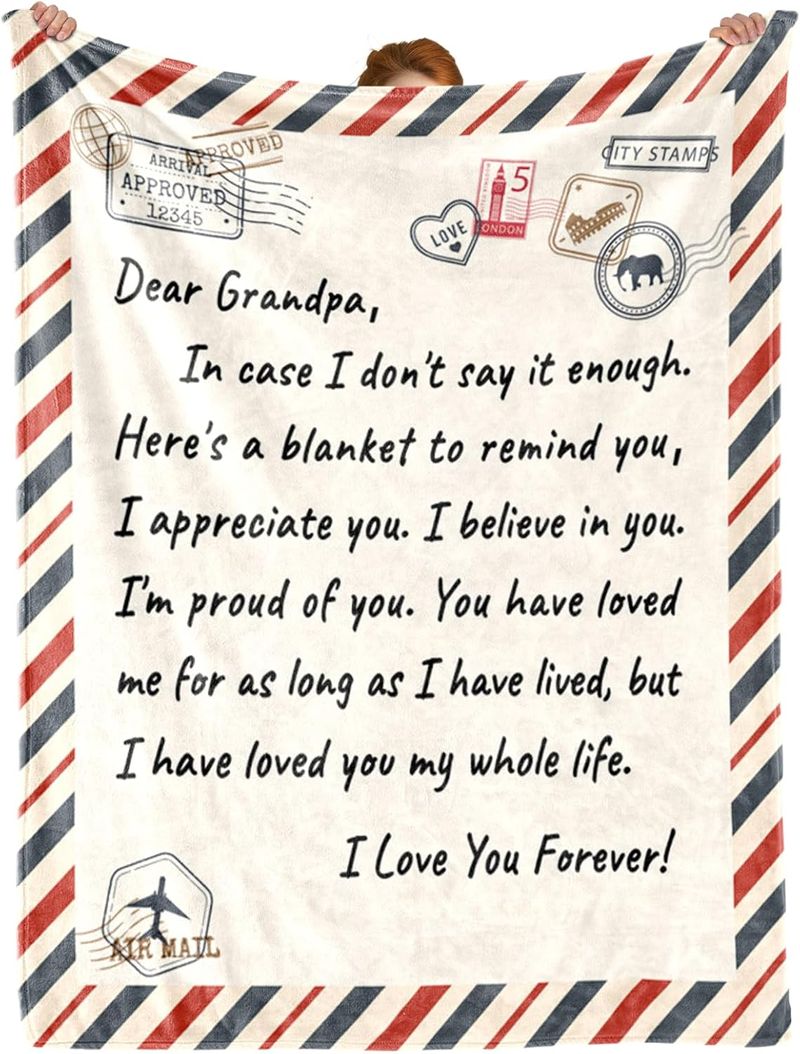 APPROVED
ARRIVAL
APPROVED
12345
CITY STAMPS
UNITED KINGDOM
5
LONDON
LOVE
Dear Grandpa,
In case I don't say it enough.
Here's a blanket to remind you,
I appreciate you. I believe in you.
I'm proud of you. You have loved
me for as long as I have lived, but
I have loved you my whole life.
I Love You Forever!
AIR MAIL